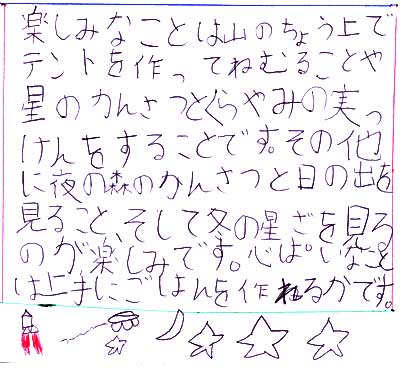 楽しみなことは山のちょう上で
テントを作ってねむることや
星のかんさつとくらやみの実っ
けんをすることです。その他
に夜の森のかんさつと日の出を
見ること、そして冬の星ざを見る
のが楽しみです。心ぱいなこと
は上手にごはんを作れるかです。